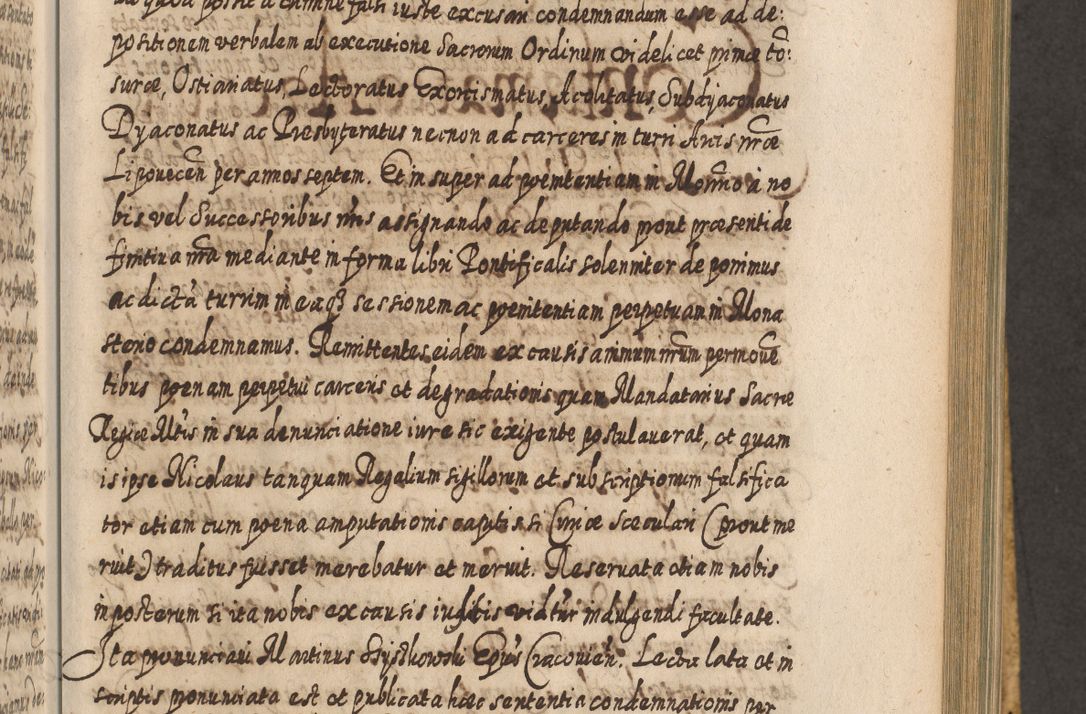 de quod possit a crimine falsi iuste excusari condemnandum esse ad de:
positionem verbalem ab executione Sacrorum Ordinum videlicet primæ to:
suræ, Ostiariatus, Lectoratus Exorcismatus, Acolitatus, Subdyaconatus
Dyaconatus ac Presbyteratus necnon ad carceres in turri Arcis nræ
Lipovecen per annos septem. Et in super ad pœnitentiam in Monrio à no
bis vel Successoribus nris assignando ac deputando prout præsenti de
finitiva nra mediante in forma libri Pontificalis solenniter deponimus
ac dictā turrim in eaqз sessionem ac pœnitentiam perpetuam in Mona
sterio condemnamus. Remittentes eidem ex causis animum nrum permovē
tibus pœnam perpetui carceris et degradationis quam Mandatarius Sacræ
Regiæ Mtis in sua denunciatione iure sic exigente postulauerat, et quam
is ipse Nicolaus tanquam Regalium sigillorum et subscriptionum falsifica
tor etiam cum pœna amputationis capitis si Curiæ Sæculari (prout me
ruit) traditus fuisset merebatur et meruit. Reseruata etiam nobis
in posterum si ita nobis ex causis iustis vidtur indulgendi facultate.
Ita pronunciaui Martinus Szyszkowski Epus Cracovien. Lecta lata et in
scriptis pronunciata est et publicata hæc sententia condemnationis per